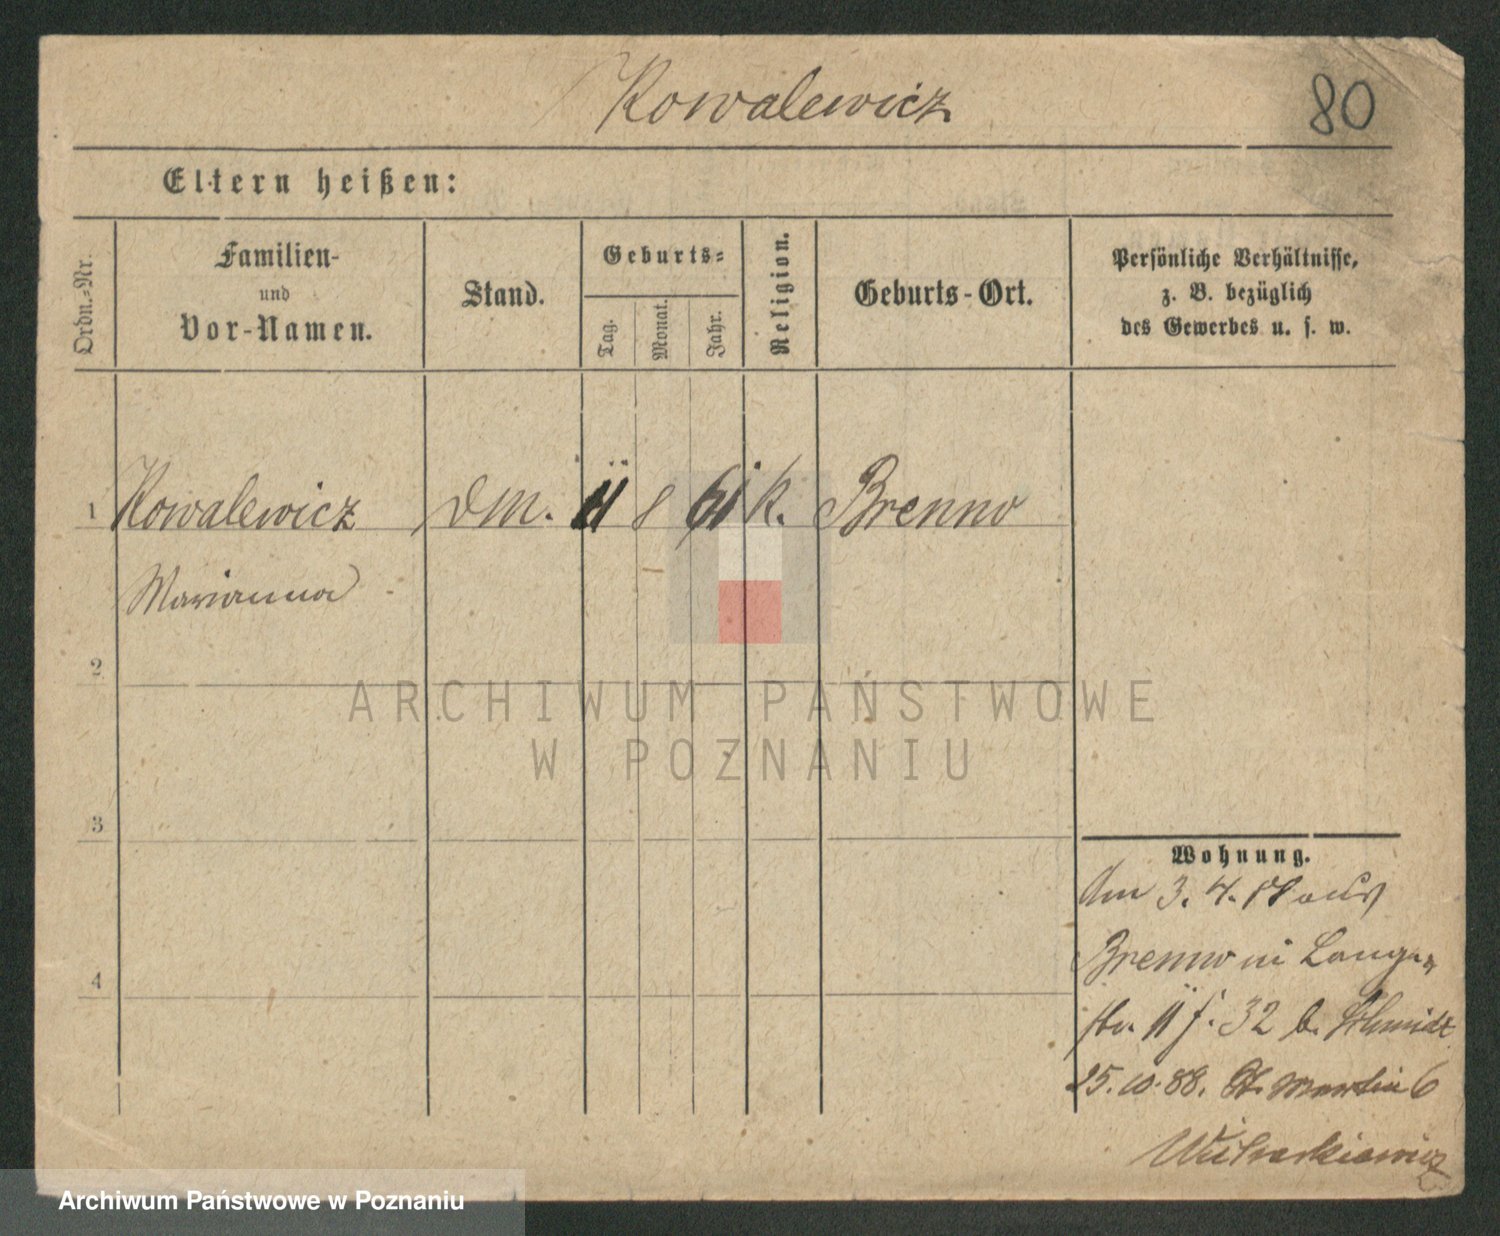 Kowalewicz
80
Eltern heißen:
Ordn.-Nr.
Familien-
und
Vor-Namen.
Stand.
Geburts-
Tag.
Monat.
Jahr.
Religion.
Geburts-Ort.
Persönliche Verhältnisse,
z. B. bezüglich
des Gewerbes u. s. w.
1 Kowalewicz DM. 11 8 61 k. Brenno
Marianna
2
ARCHIWUM PAŃSTWOWE
W POZNANIU
3
Wohnung.
Am 3. 4. aus
Brenno in Lange-
str. 11 32 b. Schmidt
4
25.10.88. St. Martin 6
Archiwum Państwowe w Poznaniu